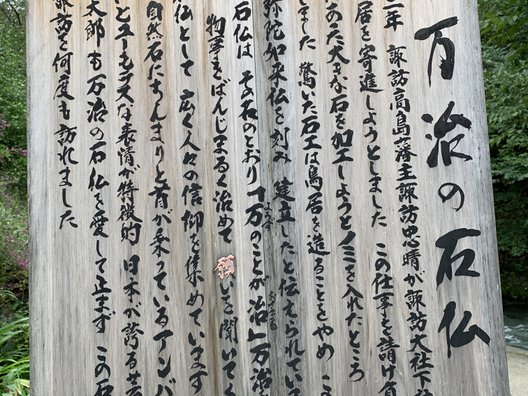 万治の石仏
三年 諏訪高島藩主諏訪忠晴が諏訪大社下社
居を寄進しようとしました この仕事を請け負
あった大きな石を加工しようとノミを入れたところ
しました 驚いた石工は鳥居を造ることをやめ こ
弥陀如来仏を刻み 建立したと伝えられてい
石仏は その名のとおり「万のことが治」万治
物事をばんじまるく治めて 願いを聞いてく
仏として 広く人々の信仰を集めています
自然石にちんまりと首が乗っているアンバ
とユーモラスな表情が特徴的 日本が誇る芸
太郎も万治の石仏を愛して止まず この石
諏訪を何度も訪れました